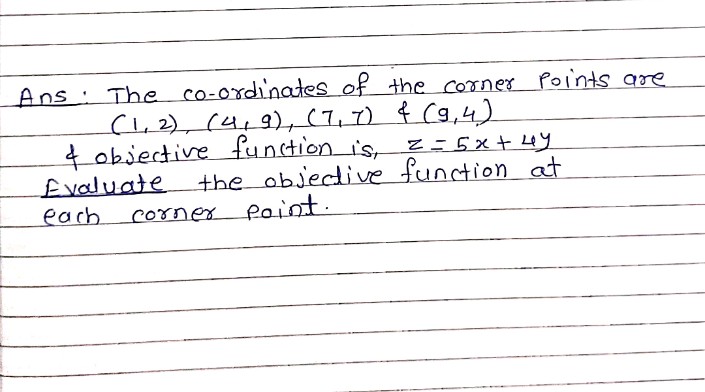 Ans : The co-ordinates of the corner points are
(1, 2), (4, 9), (7, 7) & (9, 4)
& objective function is, z = 5x + 4y
Evaluate the objective function at
each corner point.